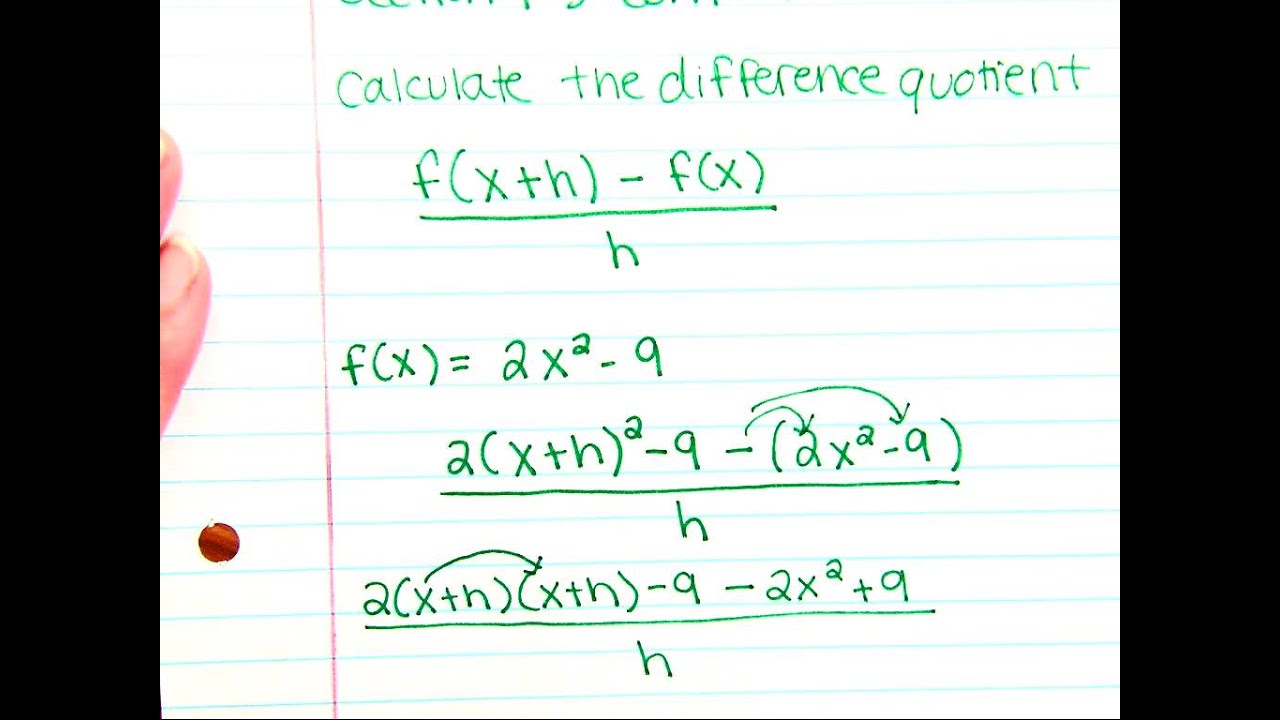 calculate the difference quotient
f(x+h) - f(x)
h
f(x) = 2x² - 9
2(x+h)² - 9 - (2x² - 9)
h
2(x+h)(x+h) - 9 - 2x² + 9
h